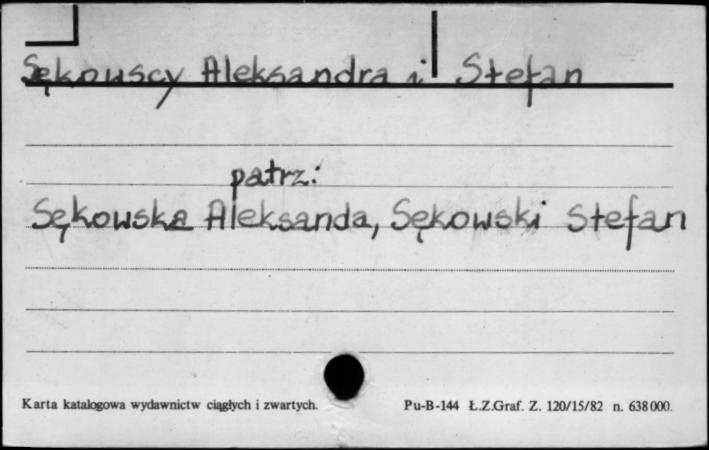 Sękowscy Aleksandra i Stefan
patrz:
Sękowska Aleksanda, Sękowski Stefan
Karta katalogowa wydawnictw ciągłych i zwartych. Pu-B-144 Ł.Z.Graf. Z. 120/15/82 n. 638000.